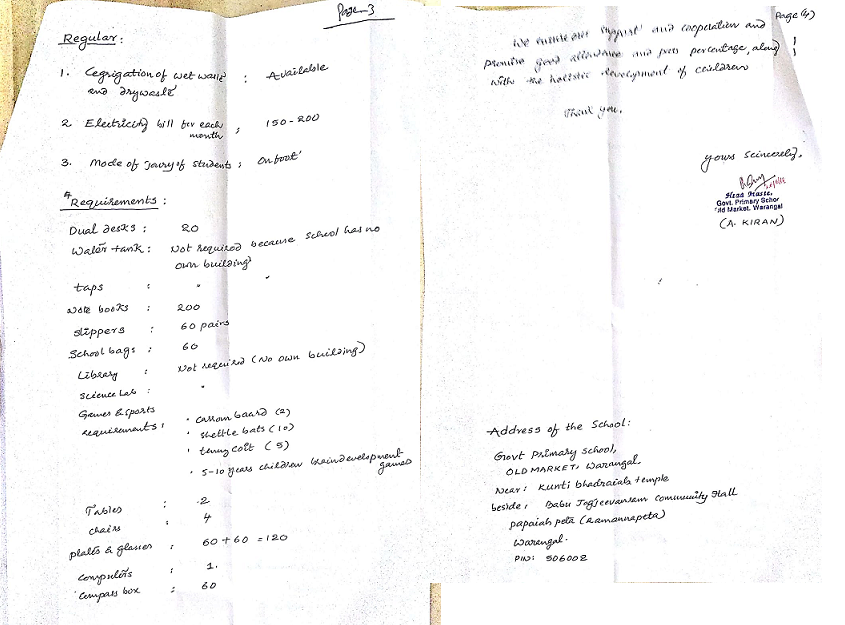 Page-3
Regular:
1. Cegrigation of wet waste : Available
and drywaste
2 Electricity bill for each : 150-200
month
3. Mode of joury of students : On foot
4 Requirements:
Dual desks : 20
Water tank : Not required because school has no
own building)
taps : "
Note books : 200
slippers : 60 pairs
School bags : 60
Library : Not required (No own building)
Science Lab : "
Games & sports
requirements : • carrom board (2)
• shettle bats (10)
• tennycoit (5)
• 5-10 years children braindevelopment
games
Tables : 2
chairs : 4
plates & glasses : 60+60 = 120
computers : 1.
compass box : 60
Page (4)
We support and cooperation and
promise good attendance and pass percentage, along
with the holistic development of children
Thank you.
yours scincerely,
Govt. Primary School
Old Market, Warangal
(A. KIRAN)
Address of the School:
Govt Primary School,
OLD MARKET, Warangal,
Near: Kunti bhadraiah temple
beside: Babu Jagjeevanram Community Hall
papaiah peta (Ramannapeta)
Warangal.
PIN: 506002